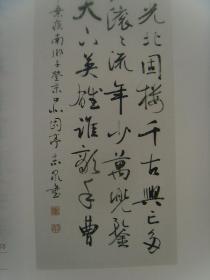 光北固樓千古興亡多
滾々流年少萬兜鍪
天下英雄誰敵手曹
棄疾南鄉子登京口北固亭